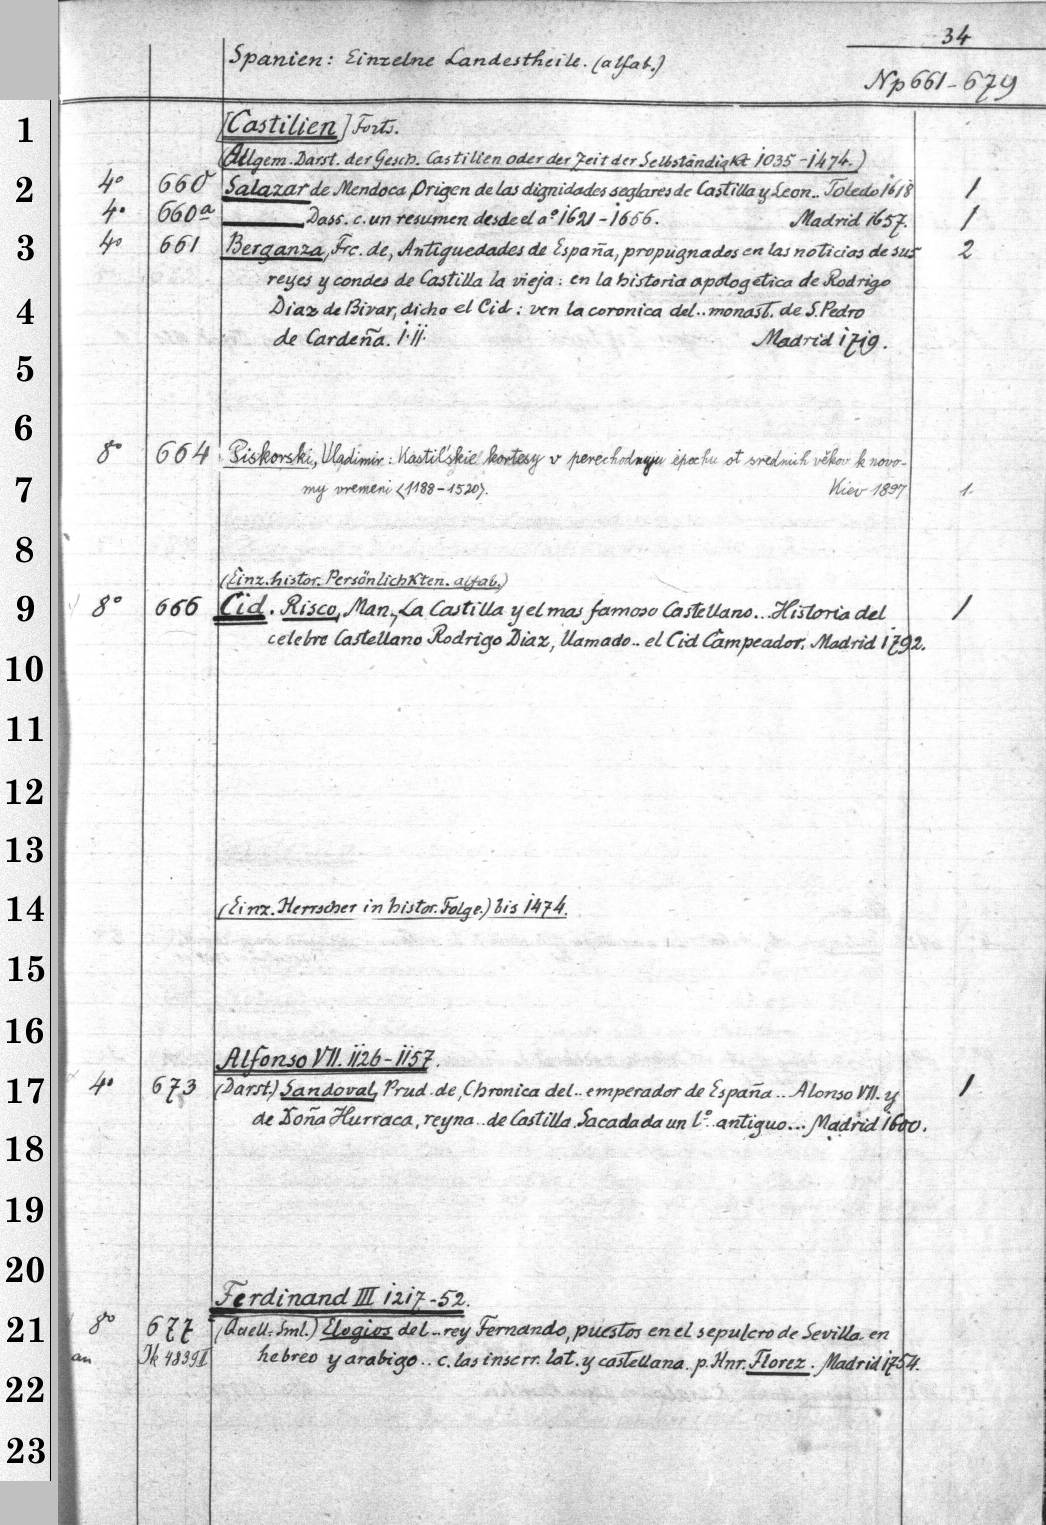 34
Spanien: Einzelne Landestheile. (alfab.)
Np 661-679
1
[Castilien] Forts.
(Allgem. Darst. der Gesch. Castilien oder der Zeit der Selbständigkt 1035-1474.)
2 4° 660 Salazar de Mendoca, Origen de las dignidades seglares de Castilla y Leon.. Toledo 1618 1
4° 660a ——— Dass. c. un resumen desde el a° 1621-1656. Madrid 1657. 1
3 4° 661 Berganza, Frc. de, Antiguedades de España, propugnados en las noticias de sus 2
reyes y condes de Castilla la vieja: en la historia apologetica de Rodrigo
4 Diaz de Bivar, dicho el Cid: ven la coronica del.. monast. de S. Pedro
de Cardeña. I.II. Madrid 1719.
5
6
8° 664 Piskorski, Vladimir: Kastil'skie kortesy v perechodnuju épochu ot srednich věkov k novo-
7 my vremeni <1188-1520>. Kiev 1897 1.
8
(Einz. histor. Persönlichkten. alfab.)
9 8° 666 Cid. Risco, Man., La Castilla y el mas famoso Castellano... Historia del 1
celebre Castellano Rodrigo Diaz, llamado.. el Cid Campeador. Madrid 1792.
10
11
12
13
14 (Einz. Herrscher in histor. Folge.) bis 1474.
15
16
Alfonso VII. 1126-1157.
17 4° 673 (Darst.) Sandoval, Prud. de, Chronica del.. emperador de España... Alonso VII. y 1
de Doña Hurraca, reyna.. de Castilla. Sacada da un l.° antiguo... Madrid 1600.
18
19
20
Ferdinand III 1217-52.
21 8° 677 (Quell. Sml.) Elogios del.. rey Fernando, puestos en el sepulcro de Sevilla en
an Jk 4839II hebreo y arabigo.. c. las inscrr. lat. y castellana. p. Hnr. Florez. Madrid 1754.
22
23